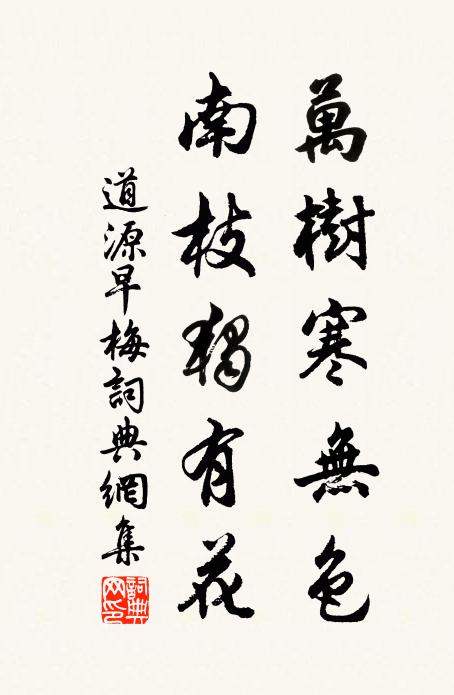 萬樹寒無色
南枝獨有花
道源早梅詞典網集
詞典
网印